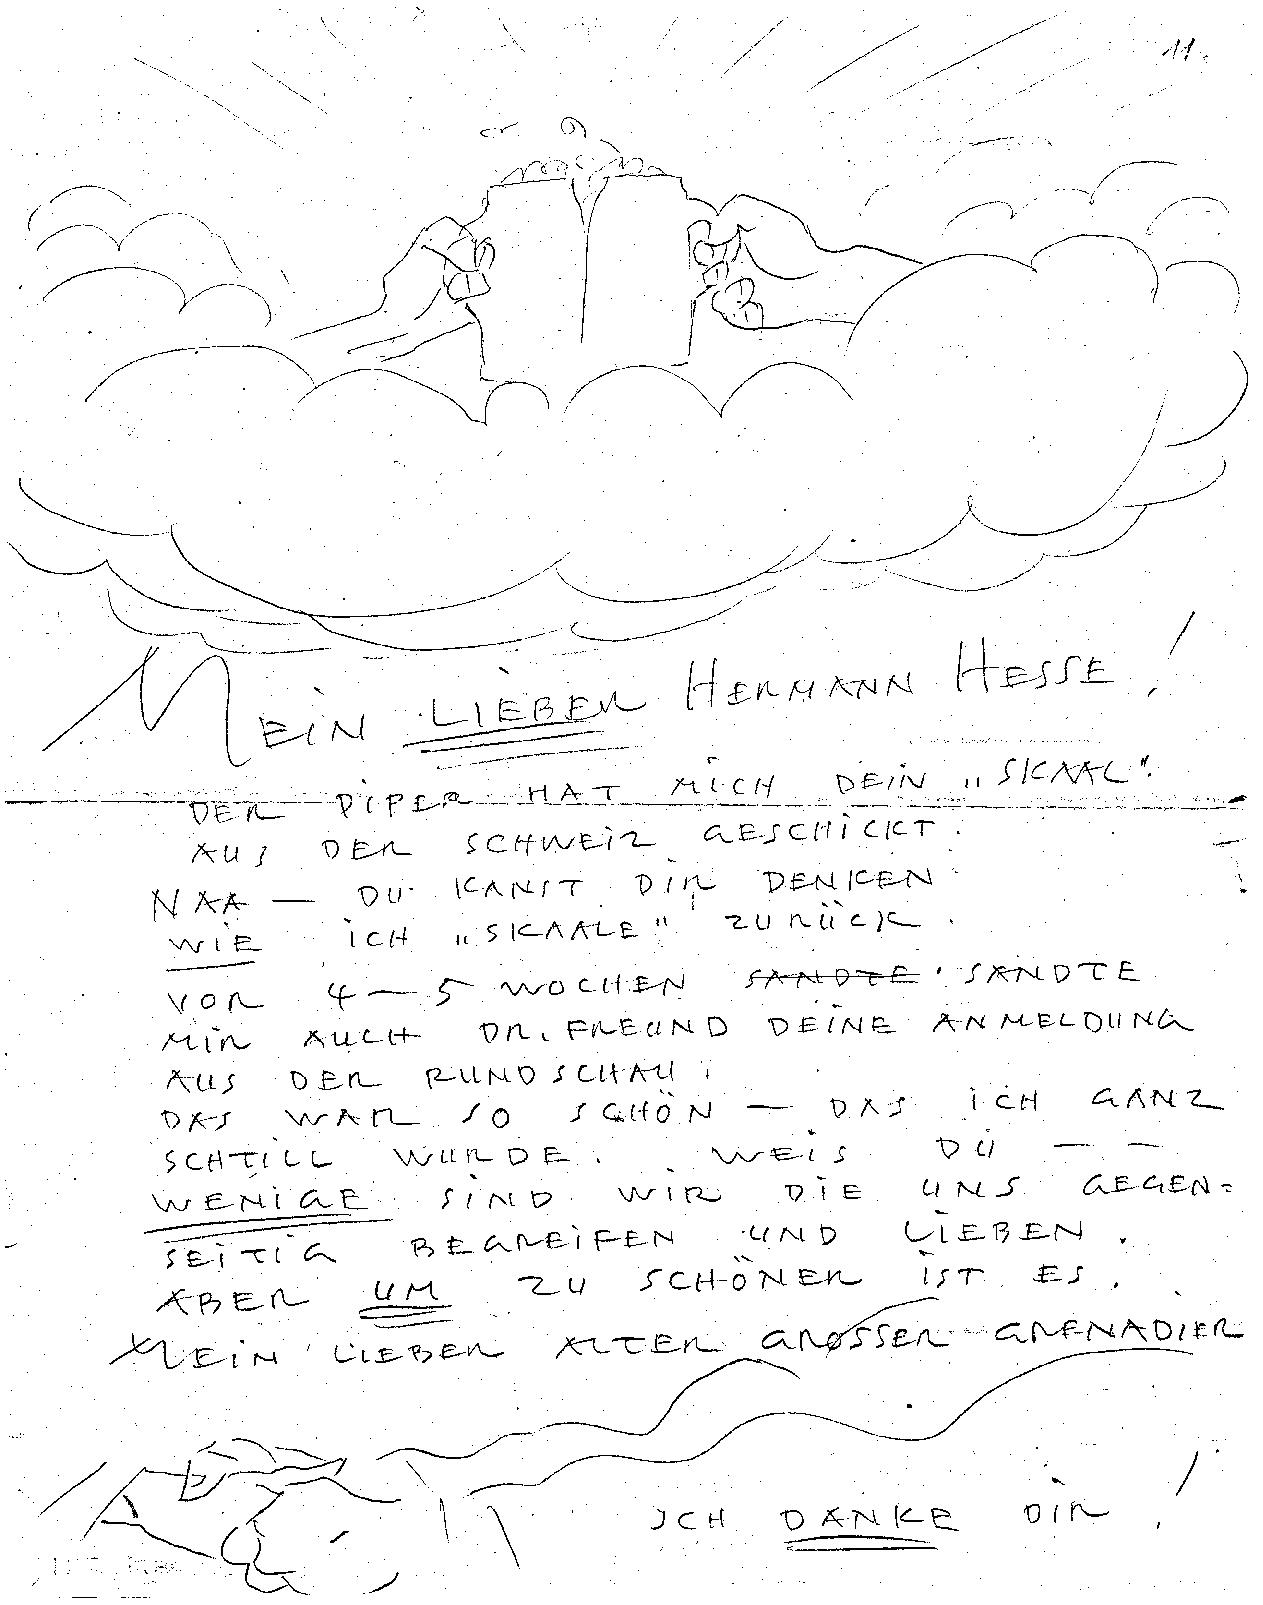 11.
MEIN LIEBER HERMANN HESSE!
DER PIPER HAT MICH DEIN „SKAAL".
AUS DER SCHWEIZ GESCHICKT.
NAA — DU KANST DIR DENKEN
WIE ICH „SKAALE" ZURÜCK.
VOR 4–5 WOCHEN SANDTE SANDTE
MIR AUCH DR. FREUND DEINE ANMELDUNG
AUS DER RUNDSCHAU.
DAS WAR SO SCHÖN — DAS ICH GANZ
SCHTILL WURDE. WEIS DU — —
WENIGE SIND WIR DIE UNS GEGEN=
SEITIG BEGREIFEN UND LIEBEN.
ABER UM ZU SCHÖNER IST ES.
MEIN LIEBER ALTER GROSSER GRENADIER
ICH DANKE DIR!